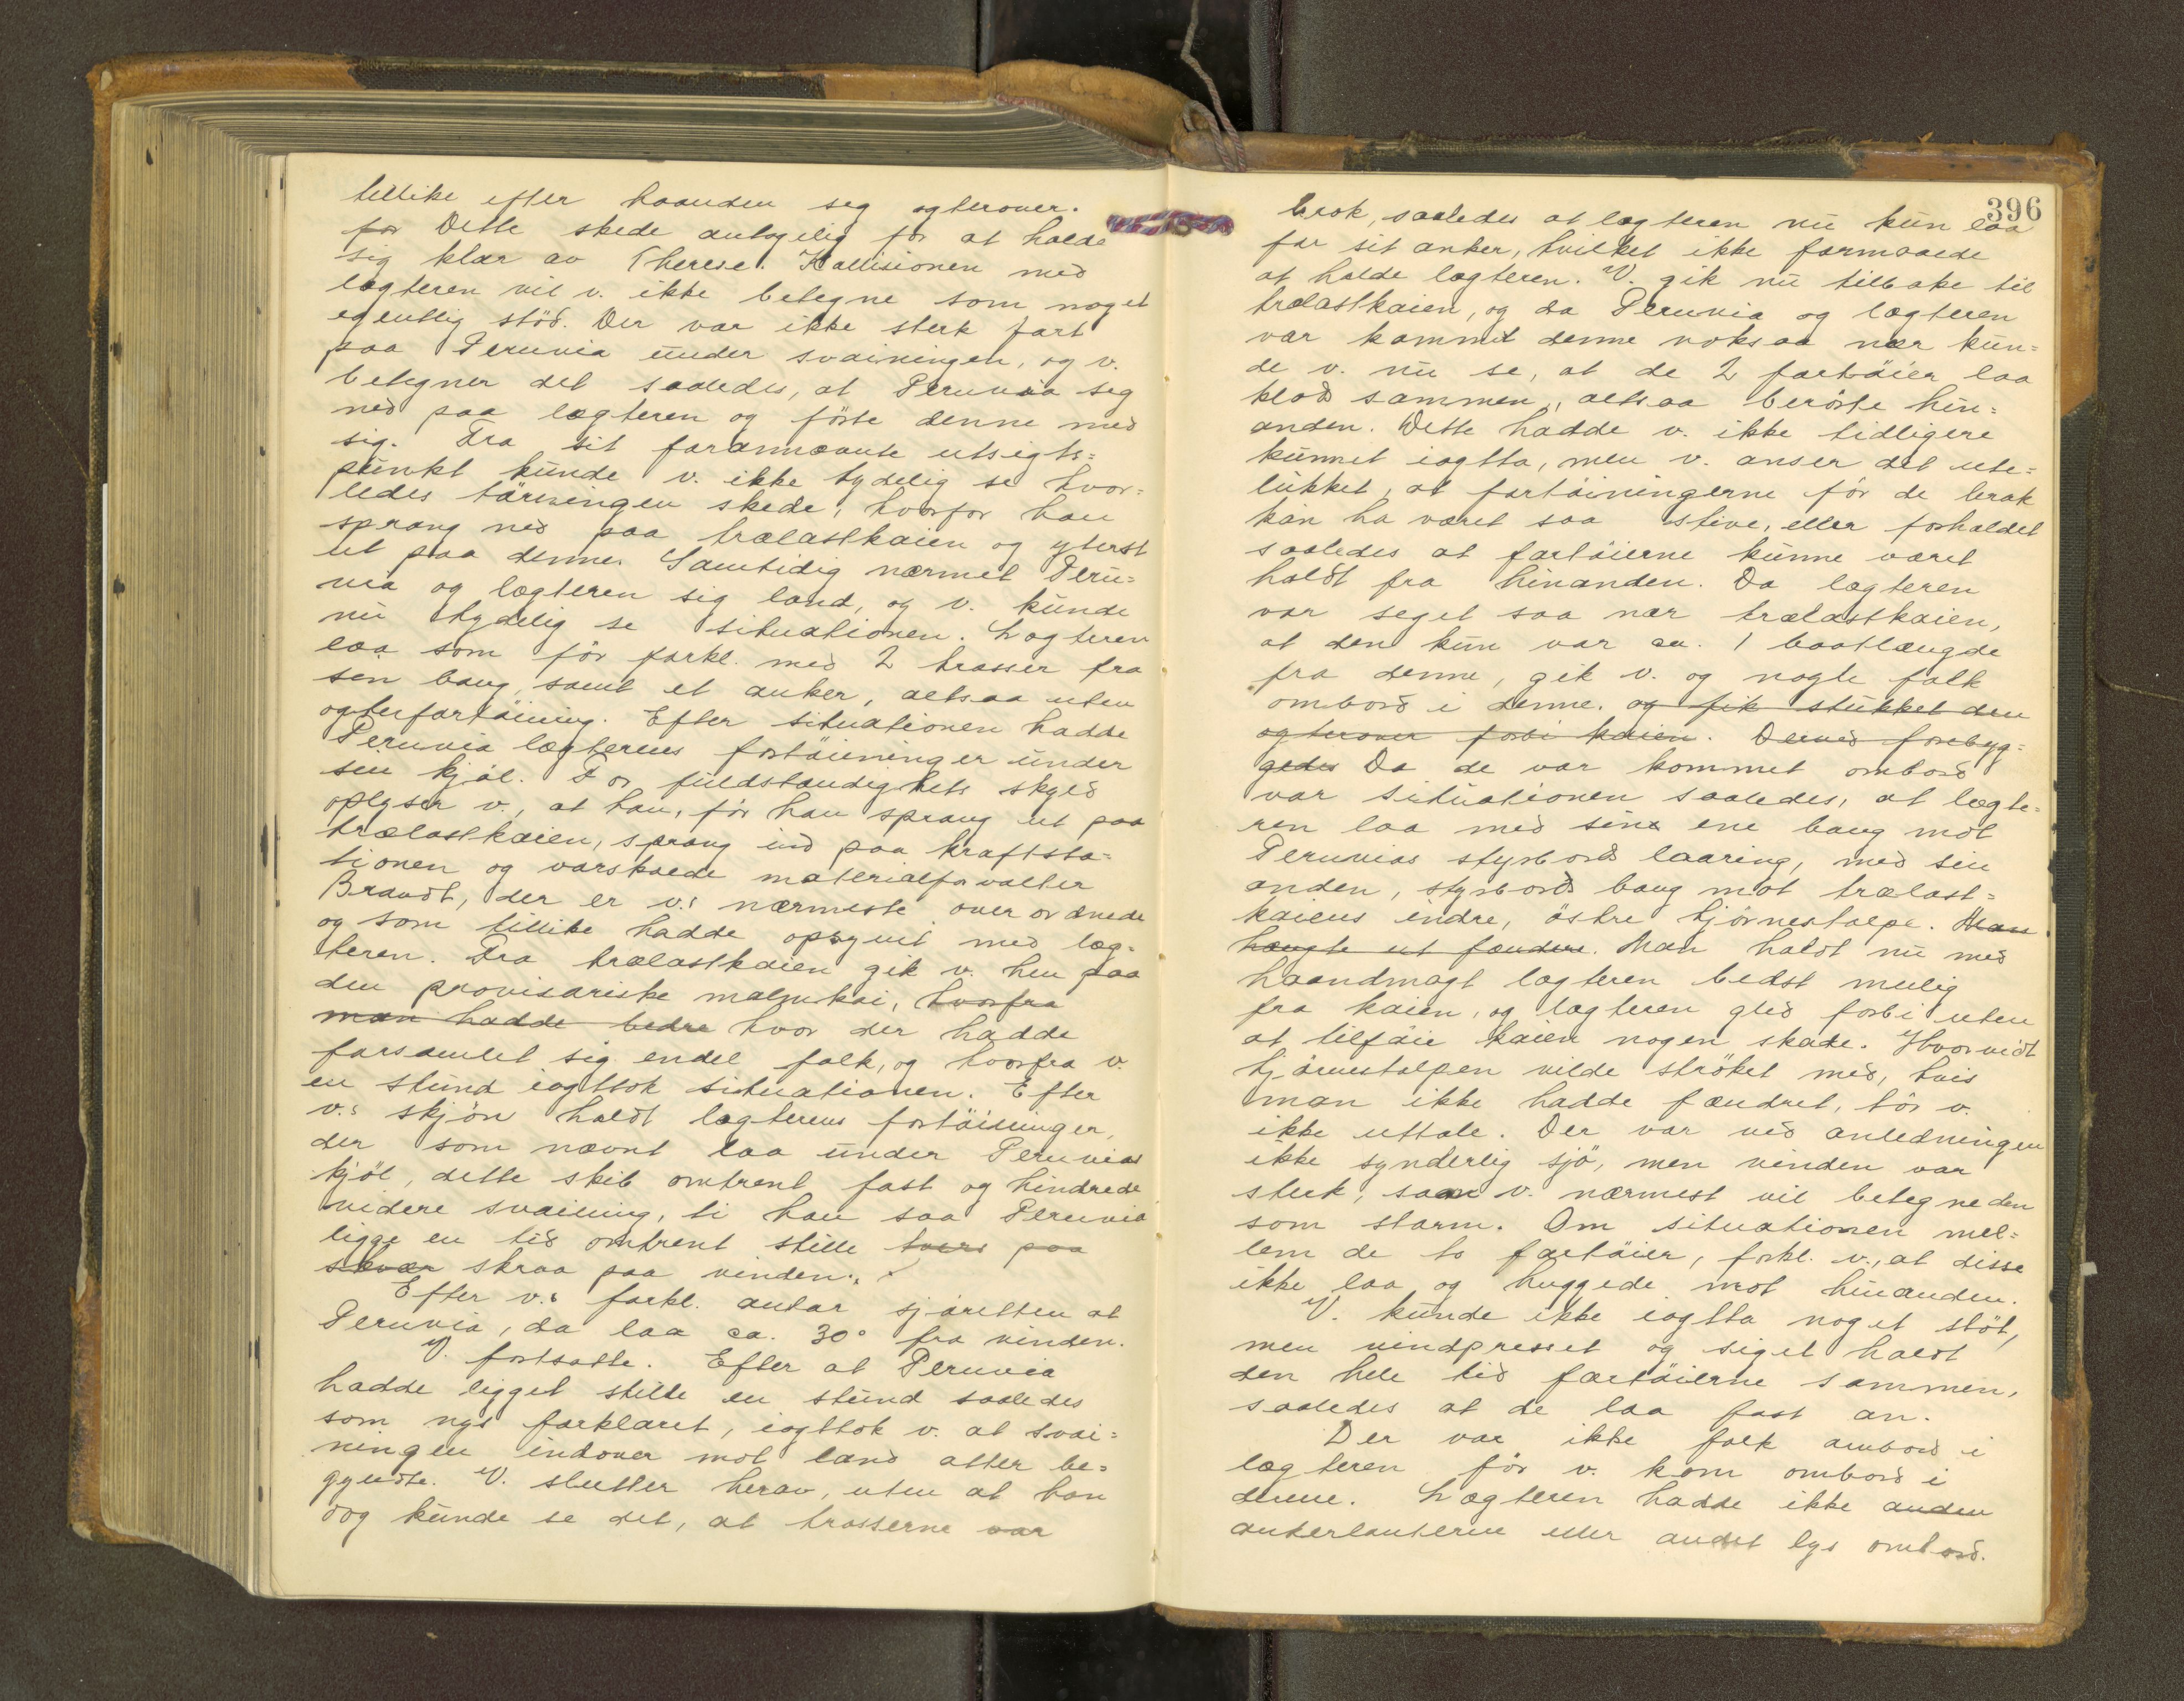 tillike efter haanden seg agterover.
for Dette skede antagelig for at holde
sig klar av Therese. Kollisionen med
lægteren vil v. ikke betegne som noget
egentlig stöd. Der var ikke sterk fart
paa Peruvia under svainingen, og v.
betegner det saaledes, at Peruvia seg
ned paa lægteren og förte denne med
sig. Fra sit forannævnte utsigts=
punkt kunde v. ikke tydelig se hvor=
ledes törningen skede, hvorfor han
sprang ned paa trælastkaien og yterst
ut paa denne. Samtidig nærmet Peru=
via og lægteren sig land, og v. kunde
nu tydelig se situationen. Lægteren
laa som för forkl. med 2 trosser fra
sin baug, samt et anker, altsaa uten
agterfortöining. Efter situationen hadde
Peruvia lægterens fortöininger under
sin kjöl. For fuldstændighets skyld
oplyser v., at han, för han sprang ut paa
trælastkaien, sprang ind paa kraftsta=
tionen og varskoede materialforvalter
Brandt, der er v.s nærmeste overordnede
og som tillike hadde opsynet med læg=
teren. Fra trælastkaien gik v. hen paa
den provisoriske malmkai, hvorfra
man hadde bedre hvor der hadde
forsamlet sig endel folk, og hvorfra v.
en stund iagttok situationen. Efter
v.s skjön holdt lægterens fortöininger,
der som nævnt laa under Peruvias
kjöl, dette skib omtrent fast og hindrede
videre svaining, ti han saa Peruvia
ligge en tid omtrent stille tvers paa
skraa paa vinden.
Efter v.s forkl. antar sjöretten at
Peruvia, da laa ca. 30° fra vinden.
V. fortsatte. Efter at Peruvia
hadde ligget stille en stund saaledes
som nys forklaret, iagttok v. at svai=
ningen indover mot land atter be=
gyndte. V. slutter herav, uten at han
dog kunde se det, at trosserne var
396
brok, saaledes at lægteren nu kun laa
for sit anker, hvilket ikke formaaede
at holde lægteren. V. gik nu tilbake til
trælastkaien, og da Peruvia og lægteren
var kommet denne noksaa nær kun=
de v. nu se, at de 2 fartöier laa
klods sammen, altsaa berörte hin=
anden. Dette hadde v. ikke tidligere
kunnet iagtta, men v. anser det ute=
lukket, at fortöiningerne för de brak
kan ha været saa stive, eller forholdet
saaledes at fartöierne kunne været
holdt fra hinanden. Da lægteren
var seget saa nær trælastkaien,
at den kun var ca. 1 baatlængde
fra denne, gik v. og nogle folk
ombord i denne. og fik stukket den
agterover forbi kaien. Derved forebyg=
gedes Da de var kommet ombord
var situationen saaledes, at lægte=
ren laa med sin ene baug mot
Peruvias styrbords laaring, med sin
anden, styrbords baug mot trælast=
kaiens indre, östre hjörnestolpe. Man
hængte ut fendere. Man holdt nu med
haandmagt lægteren bedst mulig
fra kaien, og lægteren gled forbi uten
at tilföie kaien nogen skade. Hvorvidt
hjörnestolpen vilde ströket med, hvis
man ikke hadde fændret, tör v.
ikke uttale. Der var ved anledningen
ikke synderlig sjö, men vinden var
sterk, saa v. nærmest vil betegne den
som storm. Om situationen mel=
lem de to fartöier, forkl. v., at disse
ikke laa og huggede mot hinanden.
V. kunde ikke iagtta noget stöt,
men vindpresset og siget holdt
den hele tid fartöierne sammen,
saaledes at de laa fast an.
Der var ikke folk ombord i
lægteren för v. kom ombord i
denne. Lægteren hadde ikke anden
ankerlanterne eller andet lys ombord.